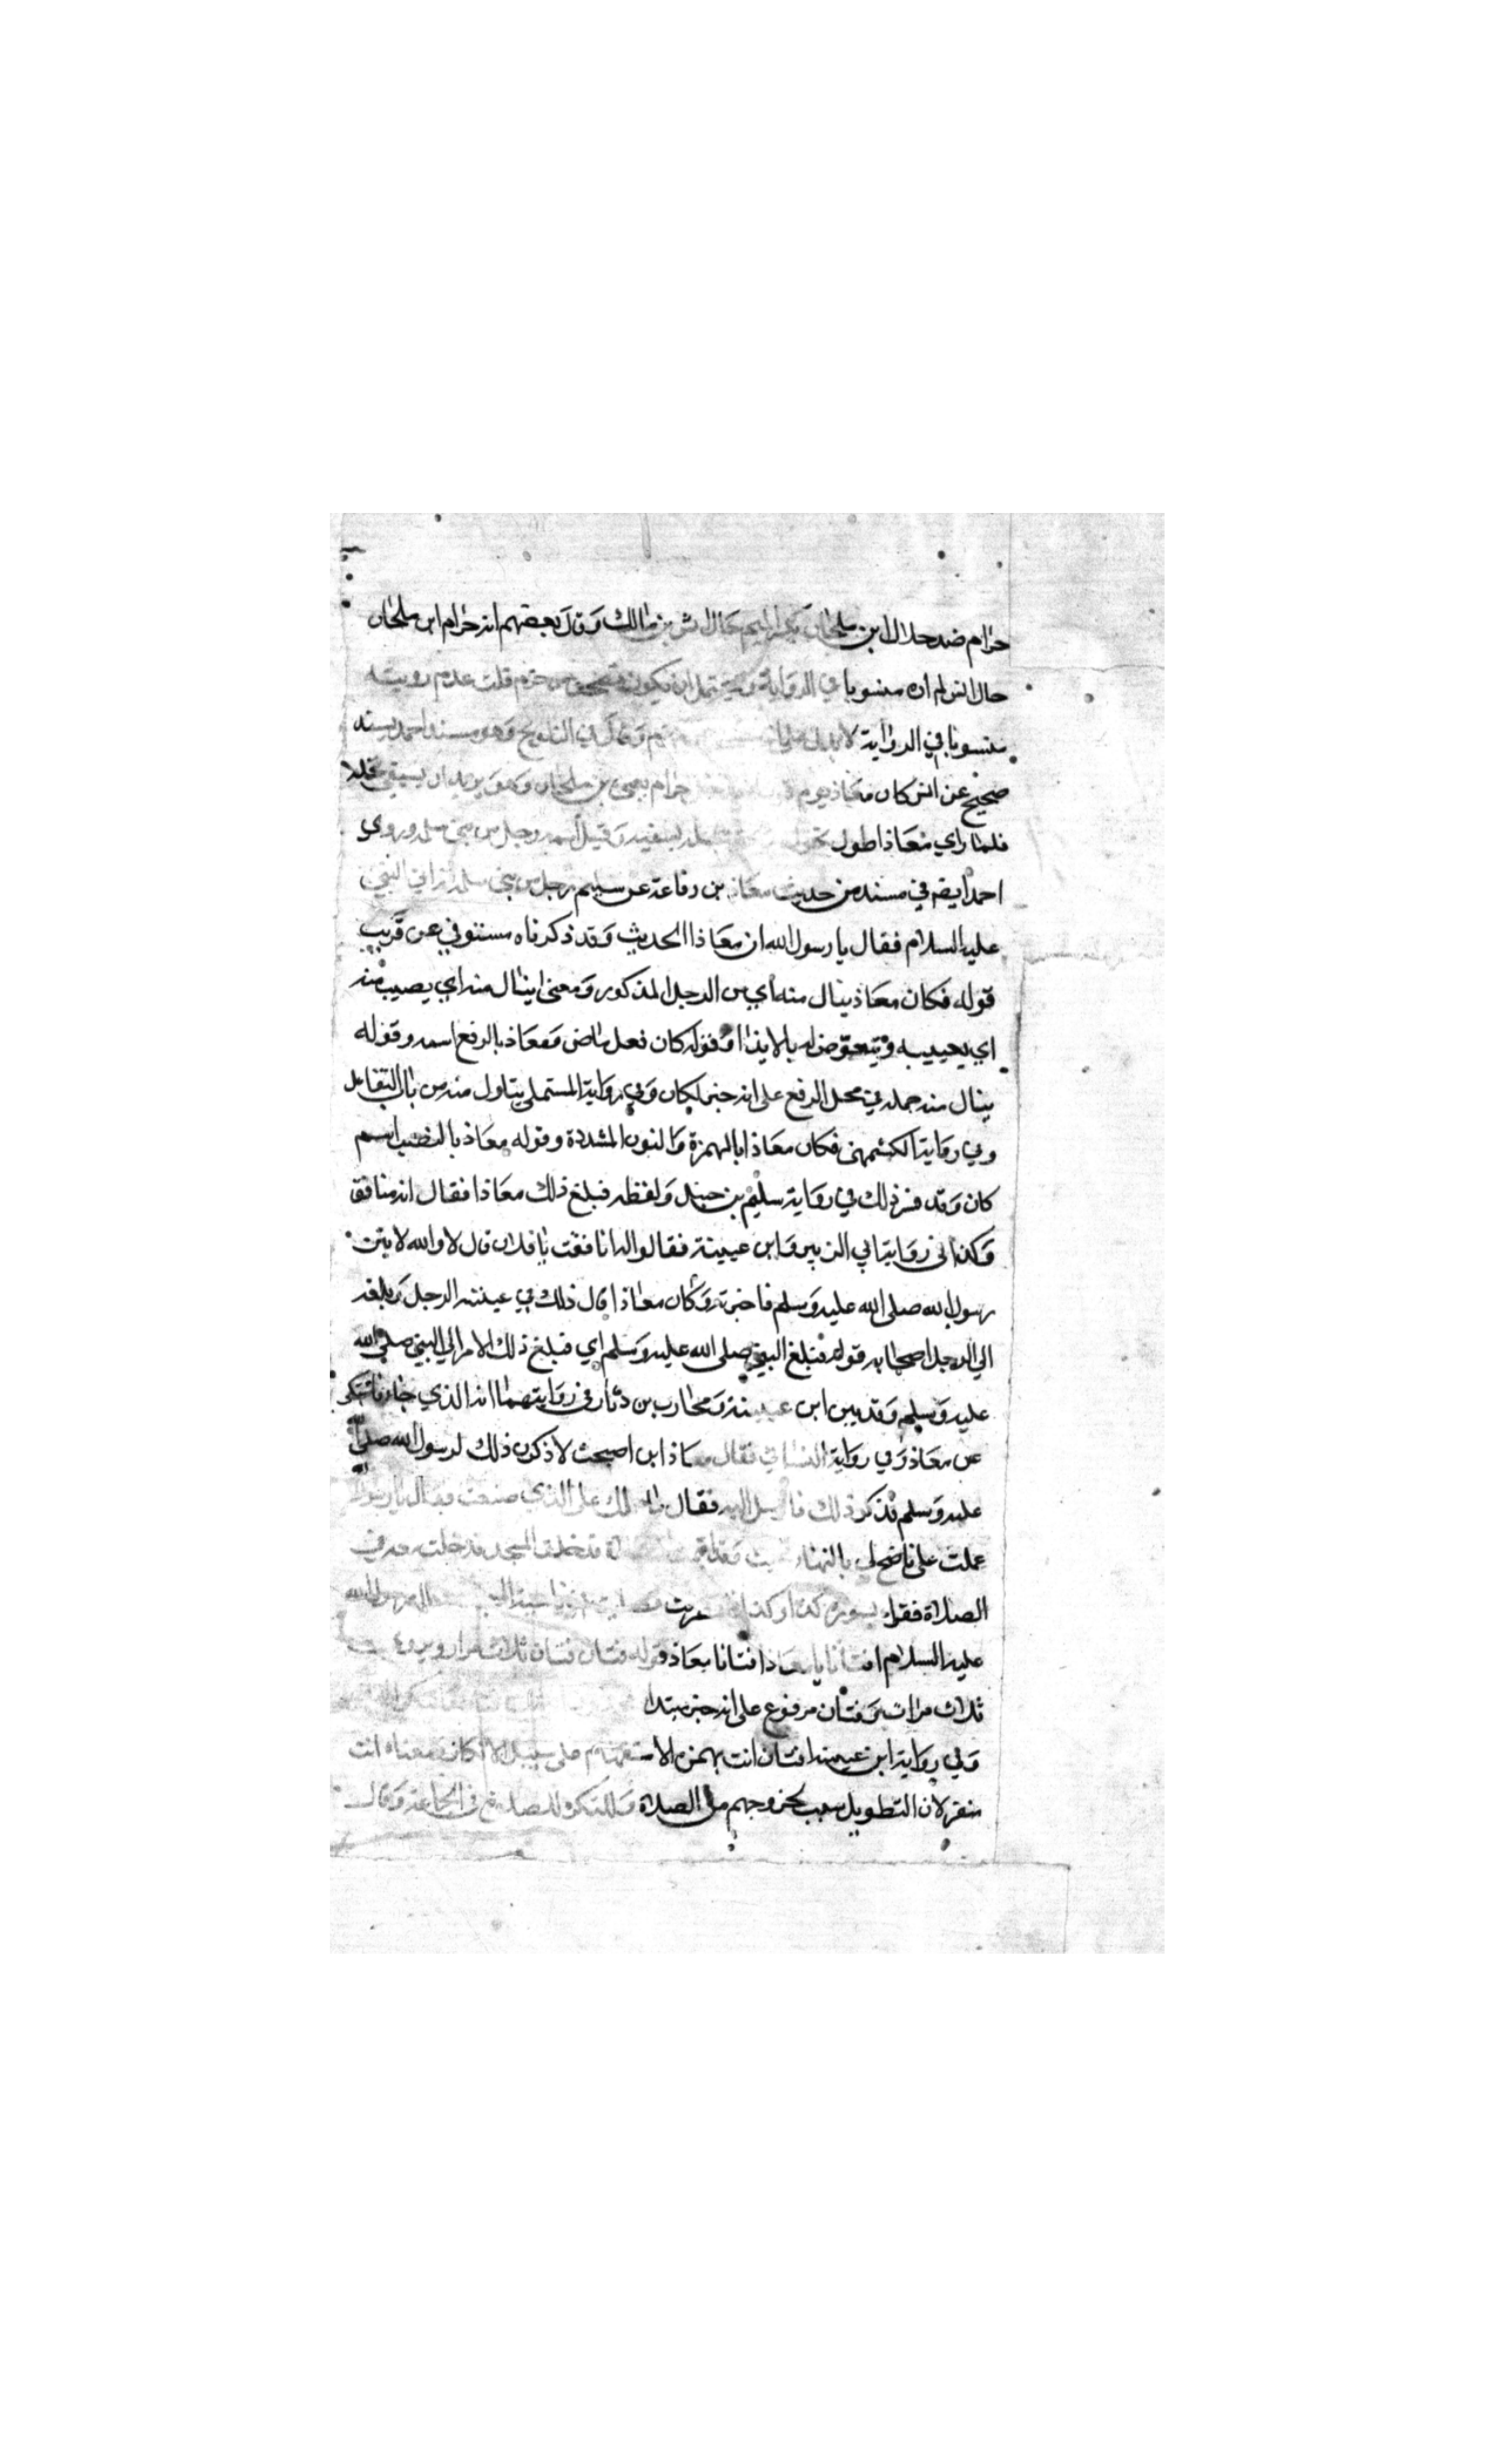 حرام ضد حلال ابن ملحان بكسر الميم خال انس بن مالك وقال بعضهم انه حرام ابن ملحان
خال انس لم اره منسوبا في الرواية ويحتمل ان يكون من حزم قلت عدم رويته
منسوبا في الرواية لا يدل وقال في التلويح وهو مسند احمد بسند
صحيح عن انس كان معاذ يوم حرام يعني بن ملحان وهو يريد ان يسقي نخله
فلما راي معاذا طول بنخله يسقيه وقيل اسمه رجل من بني سلمه وروي
احمد ايضا في مسنده من حديث معاذ بن رفاعة عن سليم رجل من بني سلمة انه اتي النبي
عليه السلام فقال يا رسول الله ان معاذا الحديث وقد ذكرناه مستوفي عن قريب
قوله فكان معاذ ينال منه اي من الرجل المذكور ومعني ينال منه اي يصيب منه
اي يعيبه ويتعرض له بالايذا وقوله كان فعل ماض ومعاذ بالرفع اسمه وقوله
ينال منه جملة في محل الرفع علي انه خبر لكان وفي رواية المستملي يتناول منه من باب التفاعل
وفي رواية الكشمهني فكان معاذا بالهمزة والنون المشددة وقوله معاذ بالنصب اسم
كان وقد فسر ذلك في رواية سليم بن حبان ولفظه فبلغ ذلك معاذا فقال انه منافق
وكذا في رواية ابي الزبير وابن عيينة فقالوا له انافقت يا فلان قال لا والله لاتين
رسول الله صلي الله عليه وسلم فاخبرته وكان معاذا قال ذلك في غيبته الرجل وبلغه
الي الرجل اصحابه قوله فبلغ النبي صلي الله عليه وسلم اي فبلغ ذلك الامر الي النبي صلي الله
عليه وسلم وقد بين ابن عيينة ومحارب بن دثار في روايتهما انه الذي جاء فاشتكي
من معاذ وفي رواية النسائي فقال معاذ لين اصبحت لاذكرن ذلك لرسول الله صلي الله
عليه وسلم فذكر ذلك فارسل اليه فقال ما حملك علي الذي صنعت فقال يا رسول
عملت علي ناضح لي بالنهار فجيت وقد اقيمت الصلاة فدخلت المسجد فدخلت معه في
الصلاة فقرا بسورة كذا وكذا فانصرفت فصليت في ناحية المسجد فقال رسول الله
عليه السلام افتانا يا معاذ افتانا يا معاذ قوله فتان فتان ثلاث مرار ويروي
ثلاث مرات وفتان مرفوع علي انه خبر مبتدا
وفي رواية ابن عيينة افتان انت بهمزة الاستفهام علي سبيل الانكار ومعناه انت
منفر لان التطويل سبب لخروجهم من الصلاة وللتكره للصلاة في الجماعة وقال